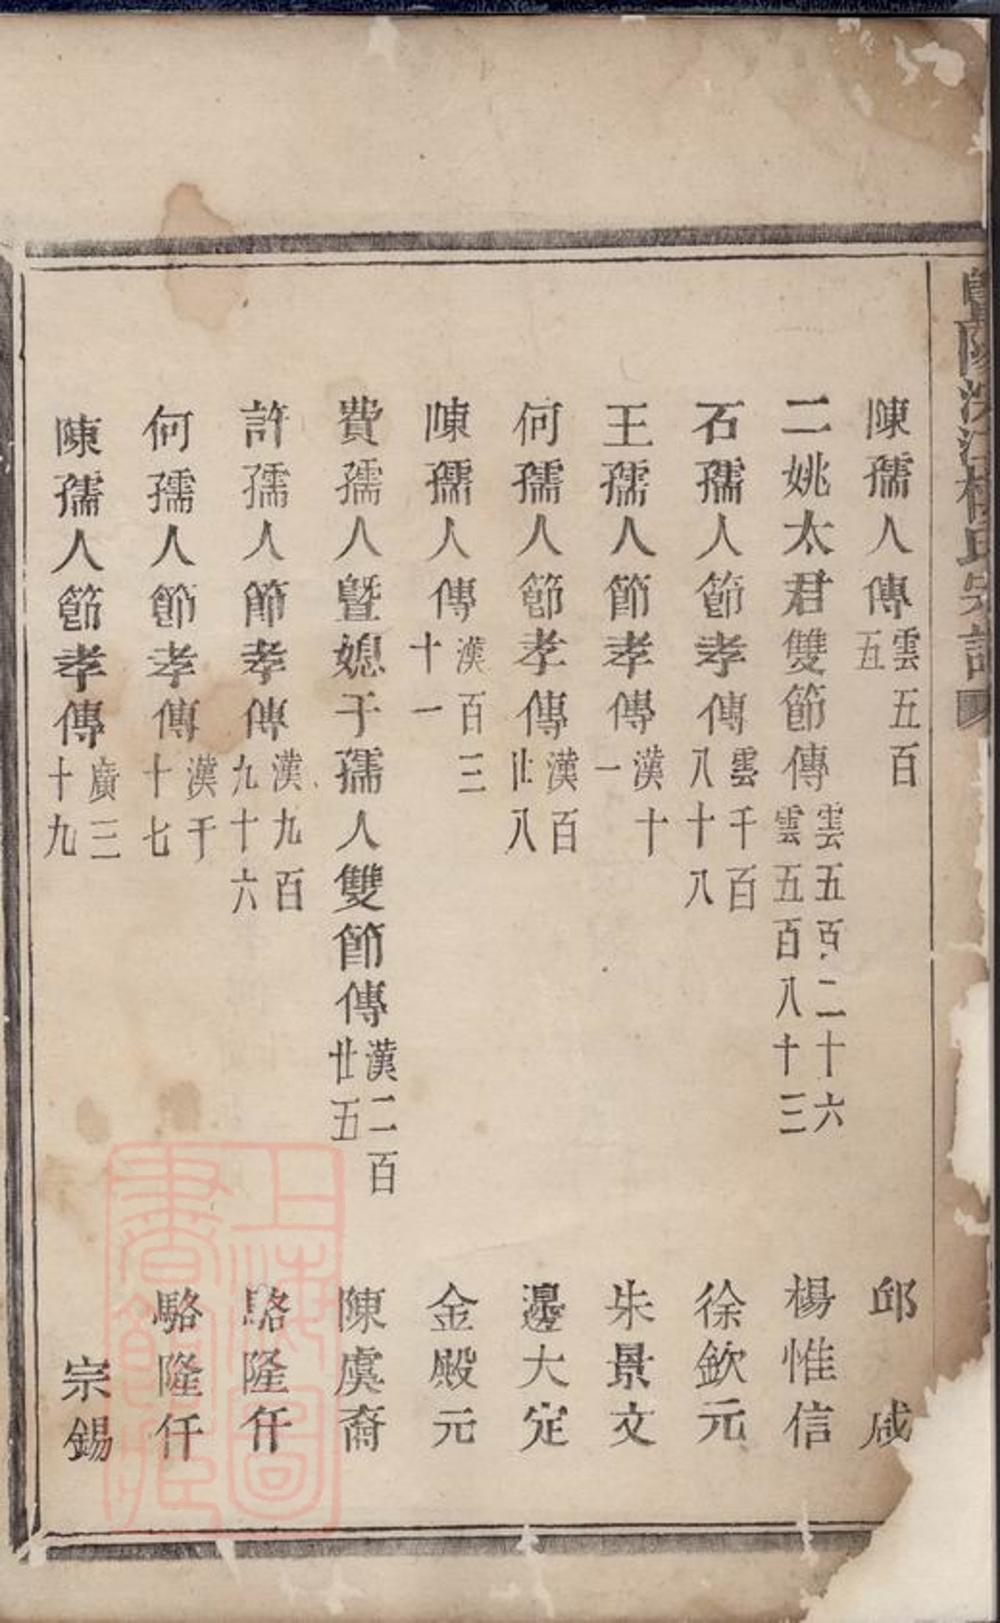 暨陽次江楊氏宗譜
陳孺人傳雲五百五 邱成
二姚太君雙節傳雲五百二十六雲五百八十三 楊惟信
石孺人節孝傳雲千百八十八 徐欽元
王孺人節孝傳漢十一 朱景文
何孺人節孝傳漢百廿八 邊大定
陳孺人傳漢百三十一 金殿元
費孺人曁媳于孺人雙節傳漢二百廿五 陳虞裔
許孺人節孝傳漢九百九十六 駱隆仟
何孺人節孝傳漢千十七 駱隆仟
陳孺人節孝傳廣三十九 宗錫
上海圖書館藏